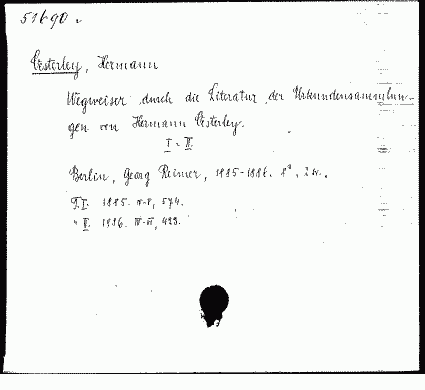 51690.
Oesterley, Hermann
Wegweiser durch die Literatur der Urkundensammlun-
gen von Hermann Oesterley.
I - II.
Berlin, Georg Reimer, 1885-1886. 8°. 2 w..
T. I. 1885. 574.
" II. 1886. 423.